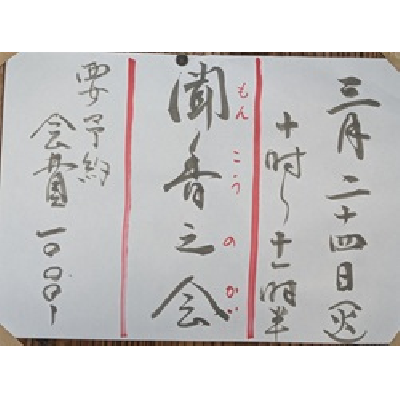 三月二十四日(火)
十時〜十一時半
聞香之会
もんこうのかい
要予約
会費一〇〇〇ー